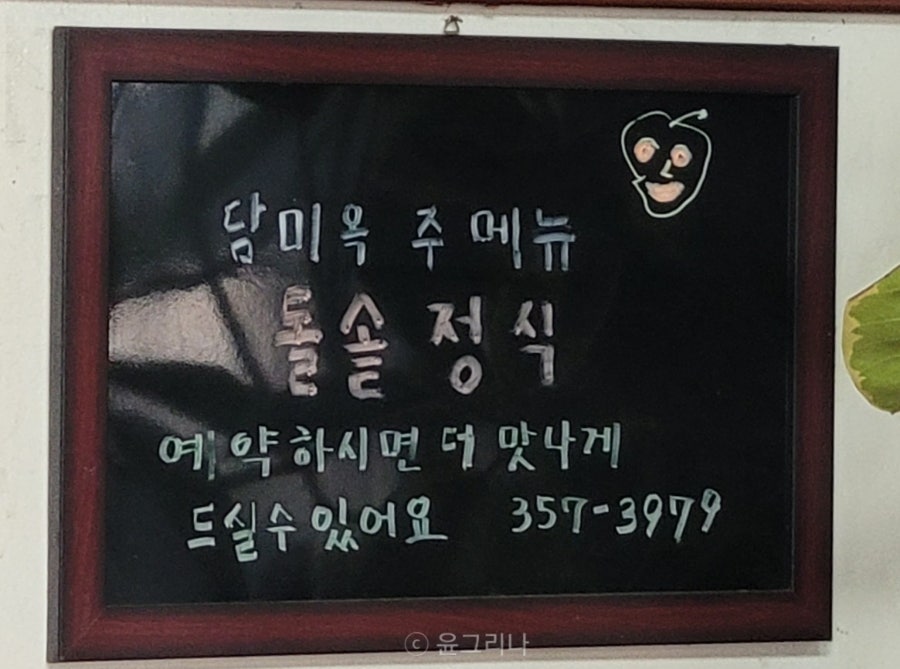 담미옥 주메뉴
돌솥 정식
예약하시면 더 맛나게
드실수 있어요 357-3979
ⓒ 윤그리나